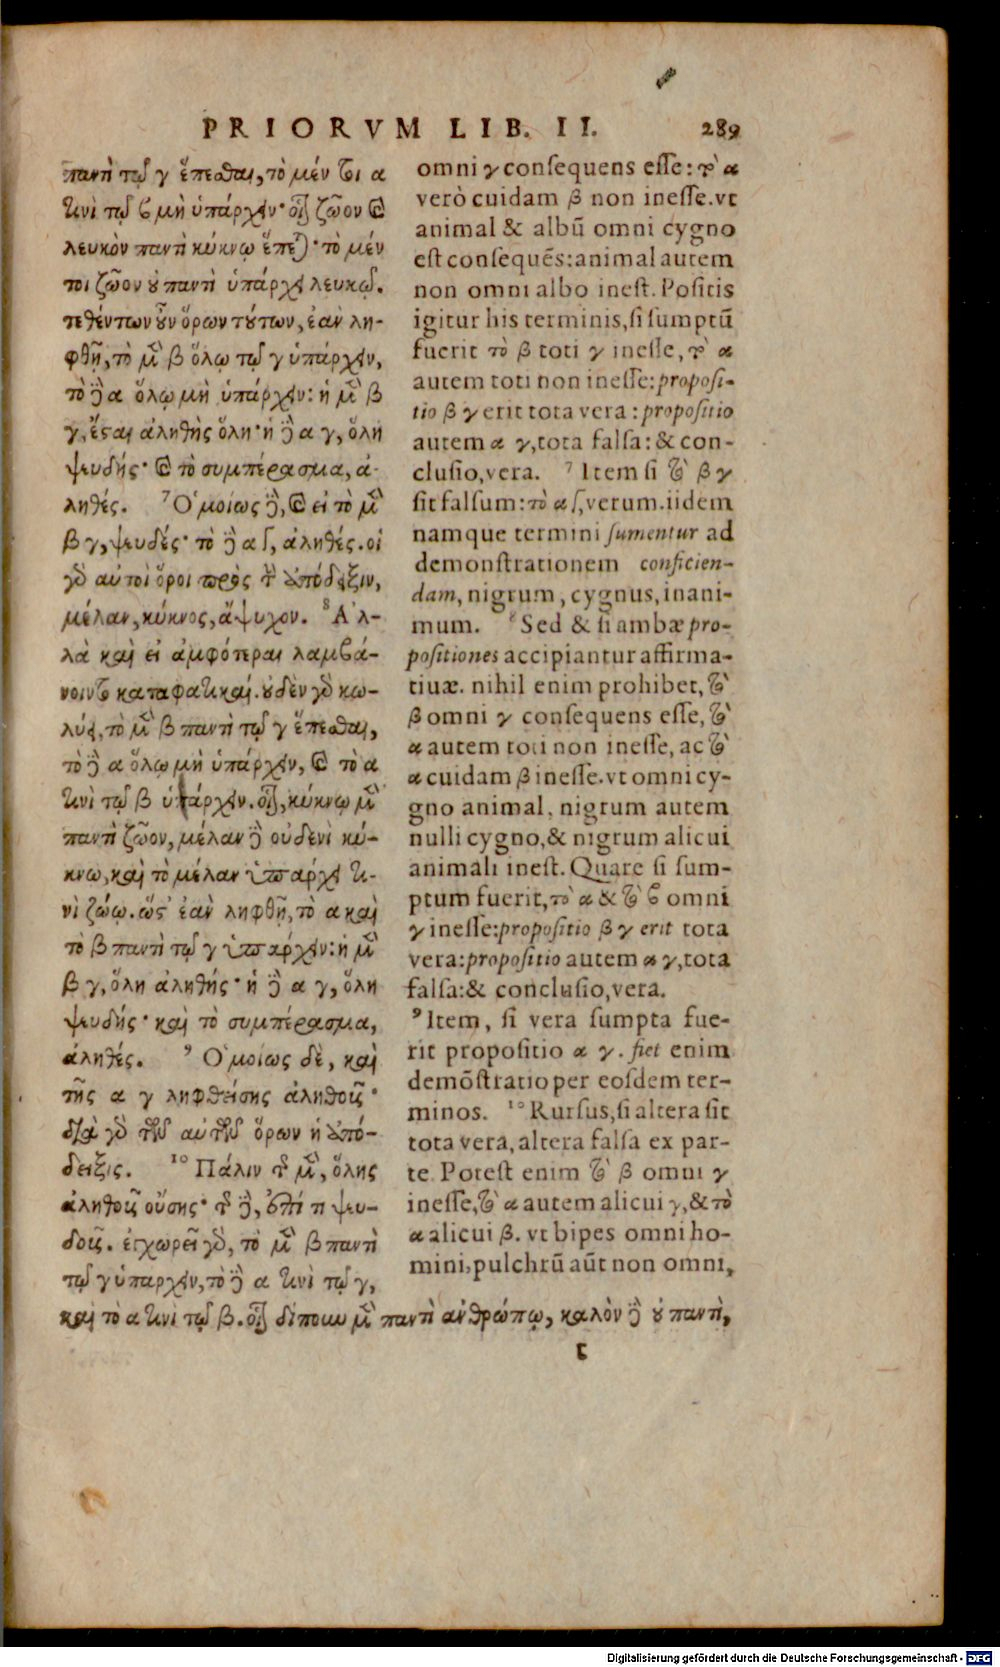 PRIORVM LIB. II. 289
παντὶ τῷ γ ἕπεσθαι, τὸ μέν τοι α
τινὶ τῷ β μὴ ὑπάρχειν· οἷον ζῶον καὶ
λευκὸν παντὶ κύκνῳ ἕπεται· τὸ μέν
τοι ζῶον οὐ παντὶ ὑπάρχει λευκῷ.
τεθέντων οὖν ὅρων τούτων, ἐὰν λη-
φθῇ, τὸ μὲν β ὅλῳ τῷ γ ὑπάρχειν,
τὸ δὲ α ὅλῳ μὴ ὑπάρχειν: ἡ μὲν β
γ, ἔσται ἀληθὴς ὅλη· ἡ δὲ α γ, ὅλη
ψευδής· καὶ τὸ συμπέρασμα, ἀ-
ληθές. ⁷ Ὁμοίως δὲ, καὶ εἰ τὸ μὲν
β γ, ψευδές· τὸ δὲ α γ, ἀληθές. οἱ
γὰρ αὐτοὶ ὅροι πρὸς τὴν ἀπόδειξιν,
μέλαν, κύκνος, ἄψυχον. ⁸ Ἀλ-
λὰ καὶ εἰ ἀμφότεραι λαμβά-
νοιντο καταφατικαί. οὐδὲν γὰρ κω-
λύει, τὸ μὲν β παντὶ τῷ γ ἕπεσθαι,
τὸ δὲ α ὅλῳ μὴ ὑπάρχειν, καὶ τὸ α
τινὶ τῷ β ὑπάρχειν. οἷον, κύκνῳ μὲν
παντὶ ζῶον, μέλαν δὲ οὐδενὶ κύ-
κνω, καὶ τὸ μέλαν ὑπάρχει τι-
νὶ ζώῳ. ὥστ' ἐὰν ληφθῇ, τὸ α καὶ
τὸ β παντὶ τῷ γ ὑπάρχειν: ἡ μὲν
β γ, ὅλη ἀληθής· ἡ δὲ α γ, ὅλη
ψευδής· καὶ τὸ συμπέρασμα,
ἀληθές. ⁹ Ὁμοίως δὲ, καὶ
τῆς α γ ληφθείσης ἀληθοῦς·
διὰ γὰρ τῶν αὐτῶν ὅρων ἡ ἀπό-
δειξις. ¹⁰ Πάλιν τῆς μὲν, ὅλης
ἀληθοῦς οὔσης· τῆς δὲ, ἐπί τι ψευ-
δοῦς. ἐγχωρεῖ γὰρ, τὸ μὲν β παντὶ
τῷ γ ὑπάρχειν, τὸ δὲ α τινὶ τῷ γ,
καὶ τὸ α τινὶ τῷ β. οἷον δίπουν μὲν παντὶ ἀνθρώπῳ, καλὸν δὲ οὐ παντὶ,
omni γ consequens esse: τὸ α
verò cuidam β non inesse. vt
animal & albū omni cygno
est consequēs: animal autem
non omni albo inest. Positis
igitur his terminis, si sumptū
fuerit τὸ β toti γ inesse, τὸ α
autem toti non inesse: proposi-
tio β γ erit tota vera: propositio
autem α γ, tota falsa: & con-
clusio, vera. ⁷ Item si τὸ β γ
sit falsum: τὸ α γ, verum. iidem
namque termini sumentur ad
demonstrationem conficien-
dam, nigrum, cygnus, inani-
mum. ⁸ Sed & si ambæ pro-
positiones accipiantur affirma-
tiuæ. nihil enim prohibet, τὸ
β omni γ consequens esse, τὸ
α autem toti non inesse, ac τὸ
α cuidam β inesse. vt omni cy-
gno animal, nigrum autem
nulli cygno, & nigrum alicui
animali inest. Quare si sum-
ptum fuerit, τὸ α & τὸ β omni
γ inesse: propositio β γ erit tota
vera: propositio autem α γ, tota
falsa: & conclusio, vera.
⁹ Item, si vera sumpta fue-
rit propositio α γ. fiet enim
demōstratio per eosdem ter-
minos. ¹⁰ Rursus, si altera sit
tota vera, altera falsa ex par-
te. Potest enim τὸ β omni γ
inesse, τὸ α autem alicui γ, & τὸ
α alicui β. vt bipes omni ho-
mini, pulchrū aūt non omni,
Digitalisierung gefördert durch die Deutsche Forschungsgemeinschaft - DFG